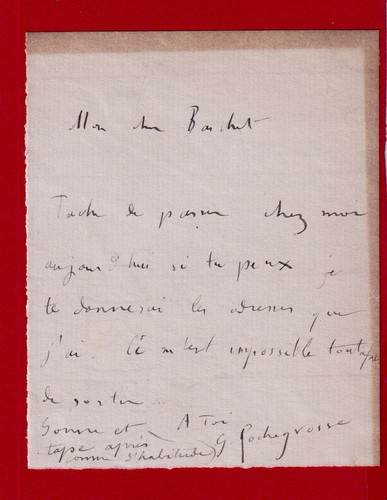 Mon cher Baschet
Tache de passer chez moi
aujourd'hui si tu peux je
te donnerai les adresses que
j'ai Ce m'est impossible tout
de sortir ...
Sonne et A toi
tape après G. Rochegrosse
comme d'habitude)